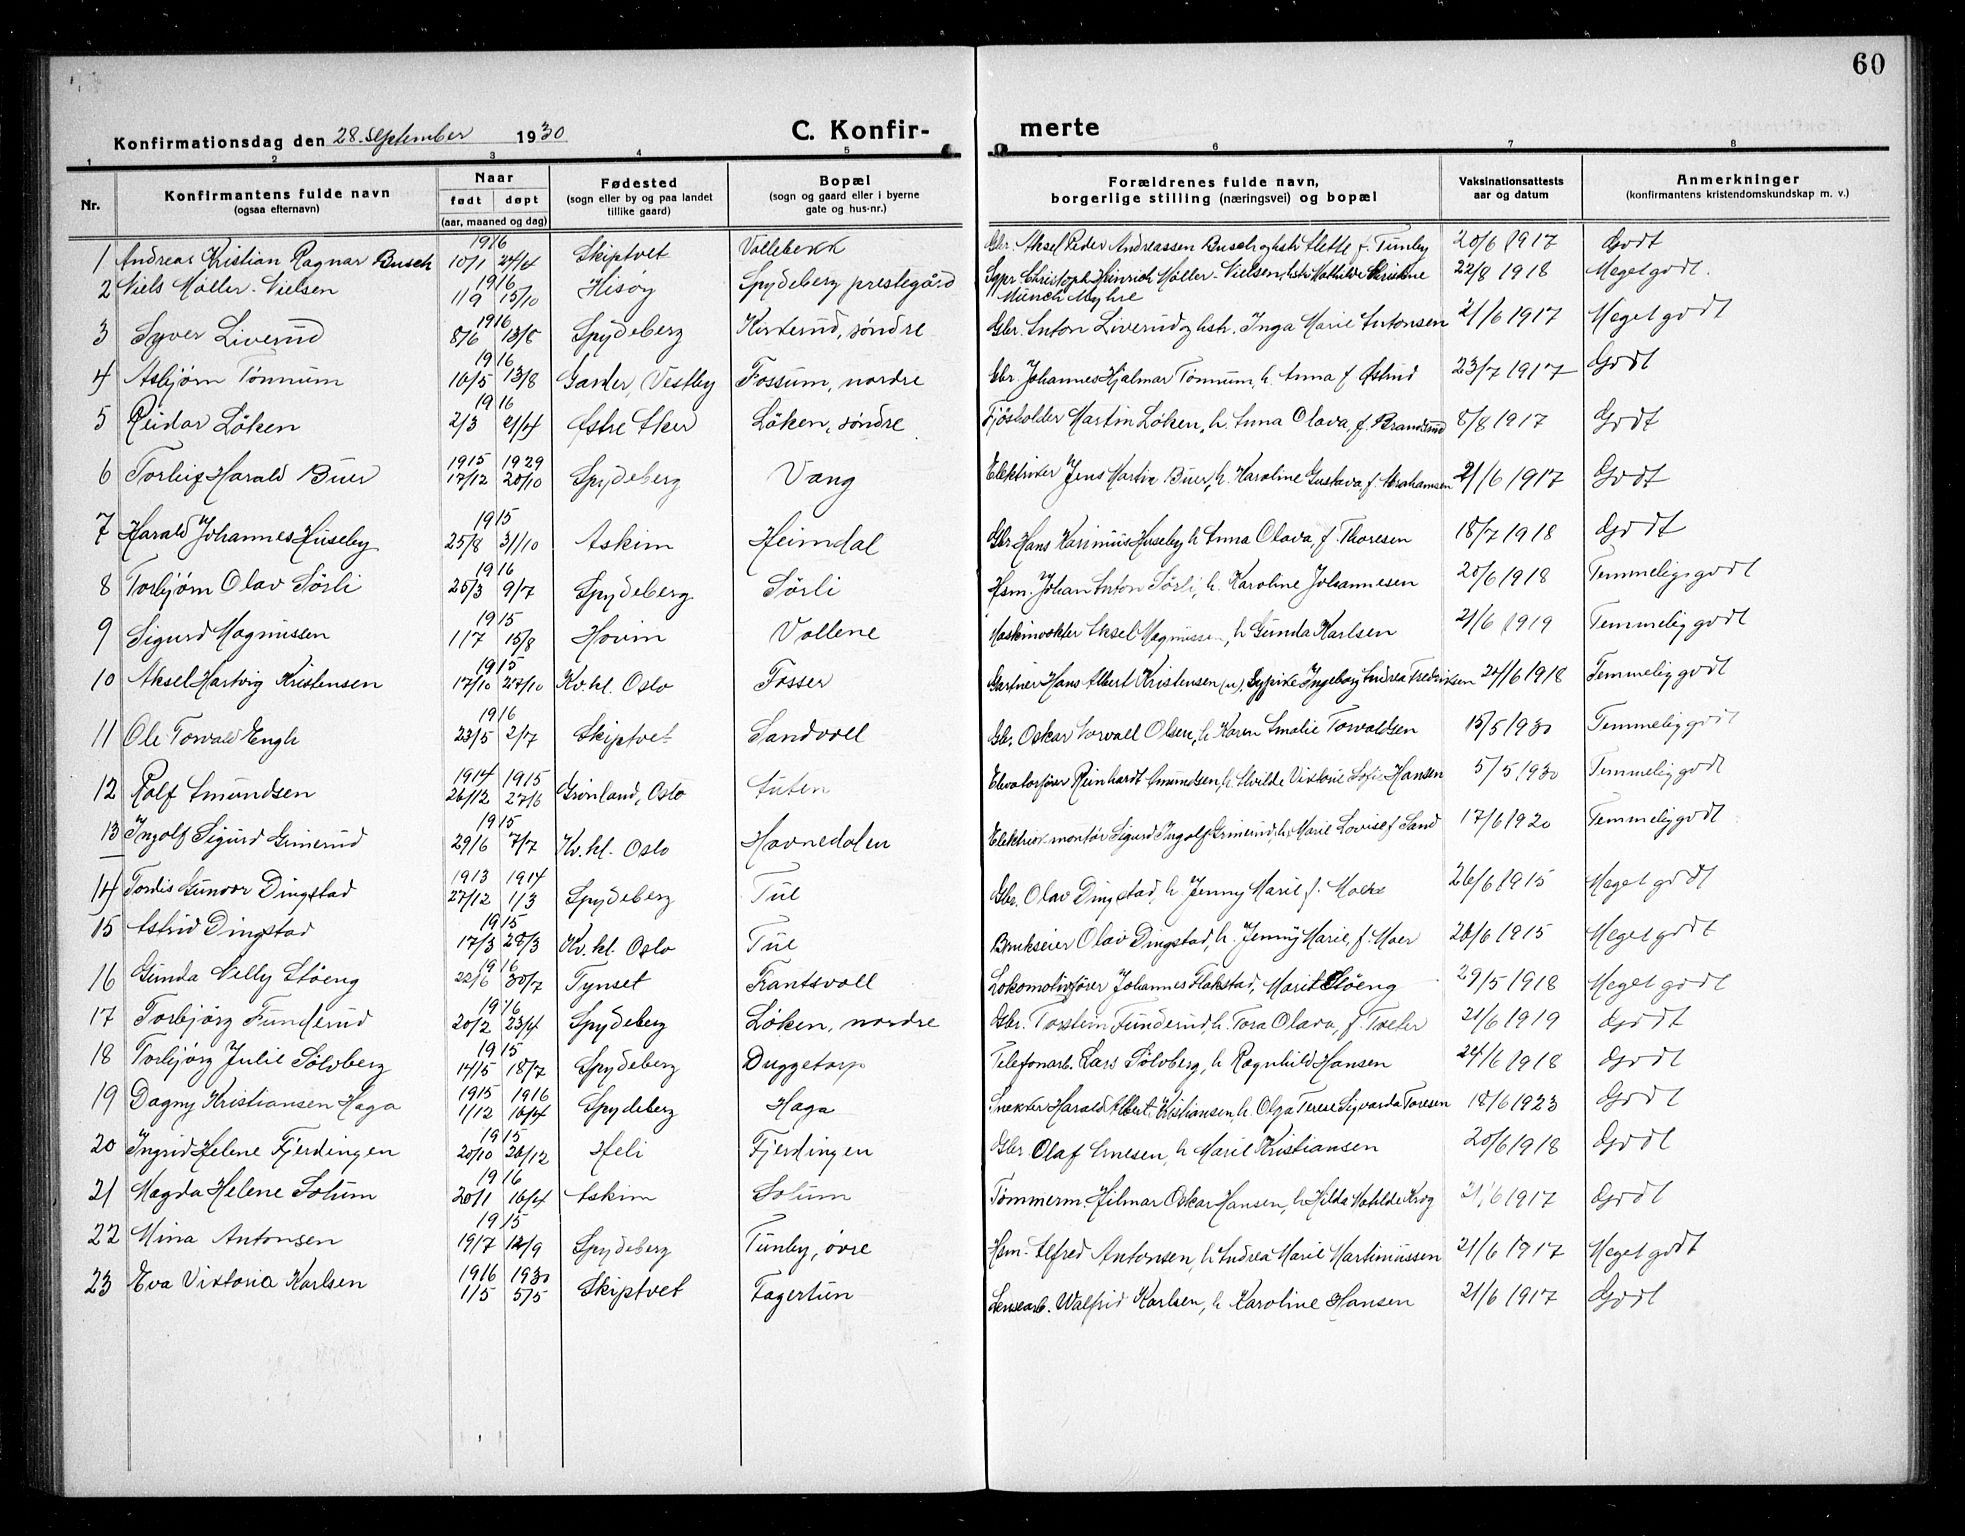 60
Konfirmationsdag den 28. september 1930
C. Konfirmerte
1 2 3 4 5 6 7 8
Nr. | Konfirmantens fulde navn (ogsaa efternavn) | Naar født døpt (aar, maaned og dag) | Fødested (sogn eller by og paa landet tillike gaard) | Bopæl (sogn og gaard eller i byerne gate og hus-nr.) | Forældrenes fulde navn, borgerlige stilling (næringsvei) og bopæl | Vaksinationsattests aar og datum | Anmerkninger (konfirmantens kristendomskundskap m. v.)
1 Andreas Kristian Ragnar Busch 1916 10/1 24/4 Skiptvet Vollebekk Gbr. Aksel Peder Andreassen Busch og hstr Mette f. Tunby 20/6 1917 Godt
2 Niels Møller-Nielsen 1916 11/9 15/10 Hisøy Spydeberg prestegård Sgpr. Christoph Heinrich Møller-Nielsen, hstr Mathilde Kristine Munch Myhre 22/8 1918 Meget godt.
3 Syver Liverud 1916 8/6 13/8 Spydeberg søndre Gbr. Anton Liverud og hstr. Inga Marie Antonsen 21/6 1917 Meget godt
4 Asbjørn Tønnum 1916 16/5 13/8 Garder, Vestby Fossum, nordre Gbr. Johannes Hjalmar Tønnum, h. Anna f. Østlid 23/7 1917 Godt
5 Reidar Løken 1916 2/3 21/4 Østre Aker Løken, søndre Fjøsholder Martin Løken, h. Anna Olava, f. Brandsrud 8/8 1917 Godt
6 Torleif Harald Buer 1915 17/12 1929 20/10 Spydeberg Vang Elektriker Jens Martin Buer, h. Karoline Gustava f. Abrahamsen 21/6 1917 Godt
7 Harald Johannes Huseby 1915 25/8 31/10 Askim Heimdal Gbr Hans Karinius Huseby h Anna Olava, f. Thoresen 18/7 1918 Godt
8 Torbjørn Olav Sørli 1916 25/3 9/7 Spydeberg Sørli Hsm. Johan Anton Sørli, h. Karoline Johannesen 20/6 1918 Temmeligs godt
9 Sigurd Magnussen 1915 11/7 15/8 Hovin Vollene Maskinvokter Aksel Magnussen, h Gunda Karlsen 21/6 1919 Temmelig godt
10 Aksel Hartvig Kristensen 1915 17/10 27/10 Kv.kl. Oslo Fosser Gartner Hans Albert Kristensen Ingeborg Andrea Fredriksen 24/6 1918 Temmelig godt
11 Ole Torvald Engh 1916 23/5 2/7 Skiptvet Sandvoll Gbr. Oskar Torvald Olsen, h Karen Amalie Torvaldsen 15/5 1930 Temmelig godt
12 Rolf Amundsen 1914 26/12 1915 27/6 Grønland, Oslo Tuten Elevatorfører Reinhardt Amundsen, h. Alvilde Viktoria Sofie Hansen 5/5 1930 Temmelig godt
13 Ingolf Sigurd Grimerud 1915 29/6 7/7 Kv.kl. Oslo Havnedalen Elektrikermontør Sigurd Ingolf Grimerud, h. Marie Lovise f. Sand 17/6 1920 Temmelig godt
14 Tordis Gunvor Dingstad 1913 27/12 1914 1/3 Spydeberg Tue Gbr. Olav Dingstad, h Jenny Marie f. 26/6 1915 Meget godt
15 Astrid Dingstad 1915 17/3 28/3 Kv.kl. Oslo Tue Brukseier Olav Dingstad, h. Jenny Marie, f. Moer 26/6 1915 Meget godt
16 Gunda Nelly Støeng 1916 22/6 30/7 Tynset Frantsvoll Lokomotivfører Johannes Flakstad, Marit Støeng 29/5 1918 Meget godt
17 Torbjørg Funderud 1916 20/2 23/4 Spydeberg Løken, nordre Gbr. Torstein Funderud h. Tora Olava, f. 21/6 1919 Godt
18 Torbjørg Julie Sølvberg 1915 14/5 18/7 Spydeberg Duggetorp Telefonarb. Lars Sølvberg, h Ragnhild Hansen 24/6 1918 Godt
19 Dagny Kristiansen Haga 1915 1/12 1916 16/4 Spydeberg Haga Snekker Harald Albert Kristiansen h. Olga Terese Sigvarda Toresen 18/6 1923 Godt
20 Ingrid Helene Fjerdingen 1915 20/10 26/12 Heli Fjerdingen Gbr Olaf Arnesen, h Marie Kristiansen 20/6 1918 Godt
21 Magda Helene Solum 1916 20/1 16/4 Askim Solum Tømmerm. Hilmar Oskar Hansen, h Hilda Matilde Krog 21/6 1917 Godt
22 Mina Antonsen 1915 19/7 12/9 Spydeberg Tunby, øvre Hsm. Alfred Antonsen, h Andrea Marie Martinussen 21/6 1917 Meget godt
23 Eva Viktoria Karlsen 1916 1/5 1930 5/5 Skiptvet Fagertun Lensearb. Walfrid Karlsen, h Karoline Hansen 21/6 1917 Godt